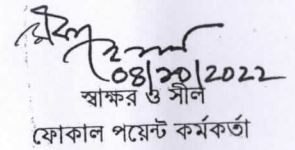 08/10/2022
স্বাক্ষর ও সীল
ফোকাল পয়েন্ট কর্মকর্তা